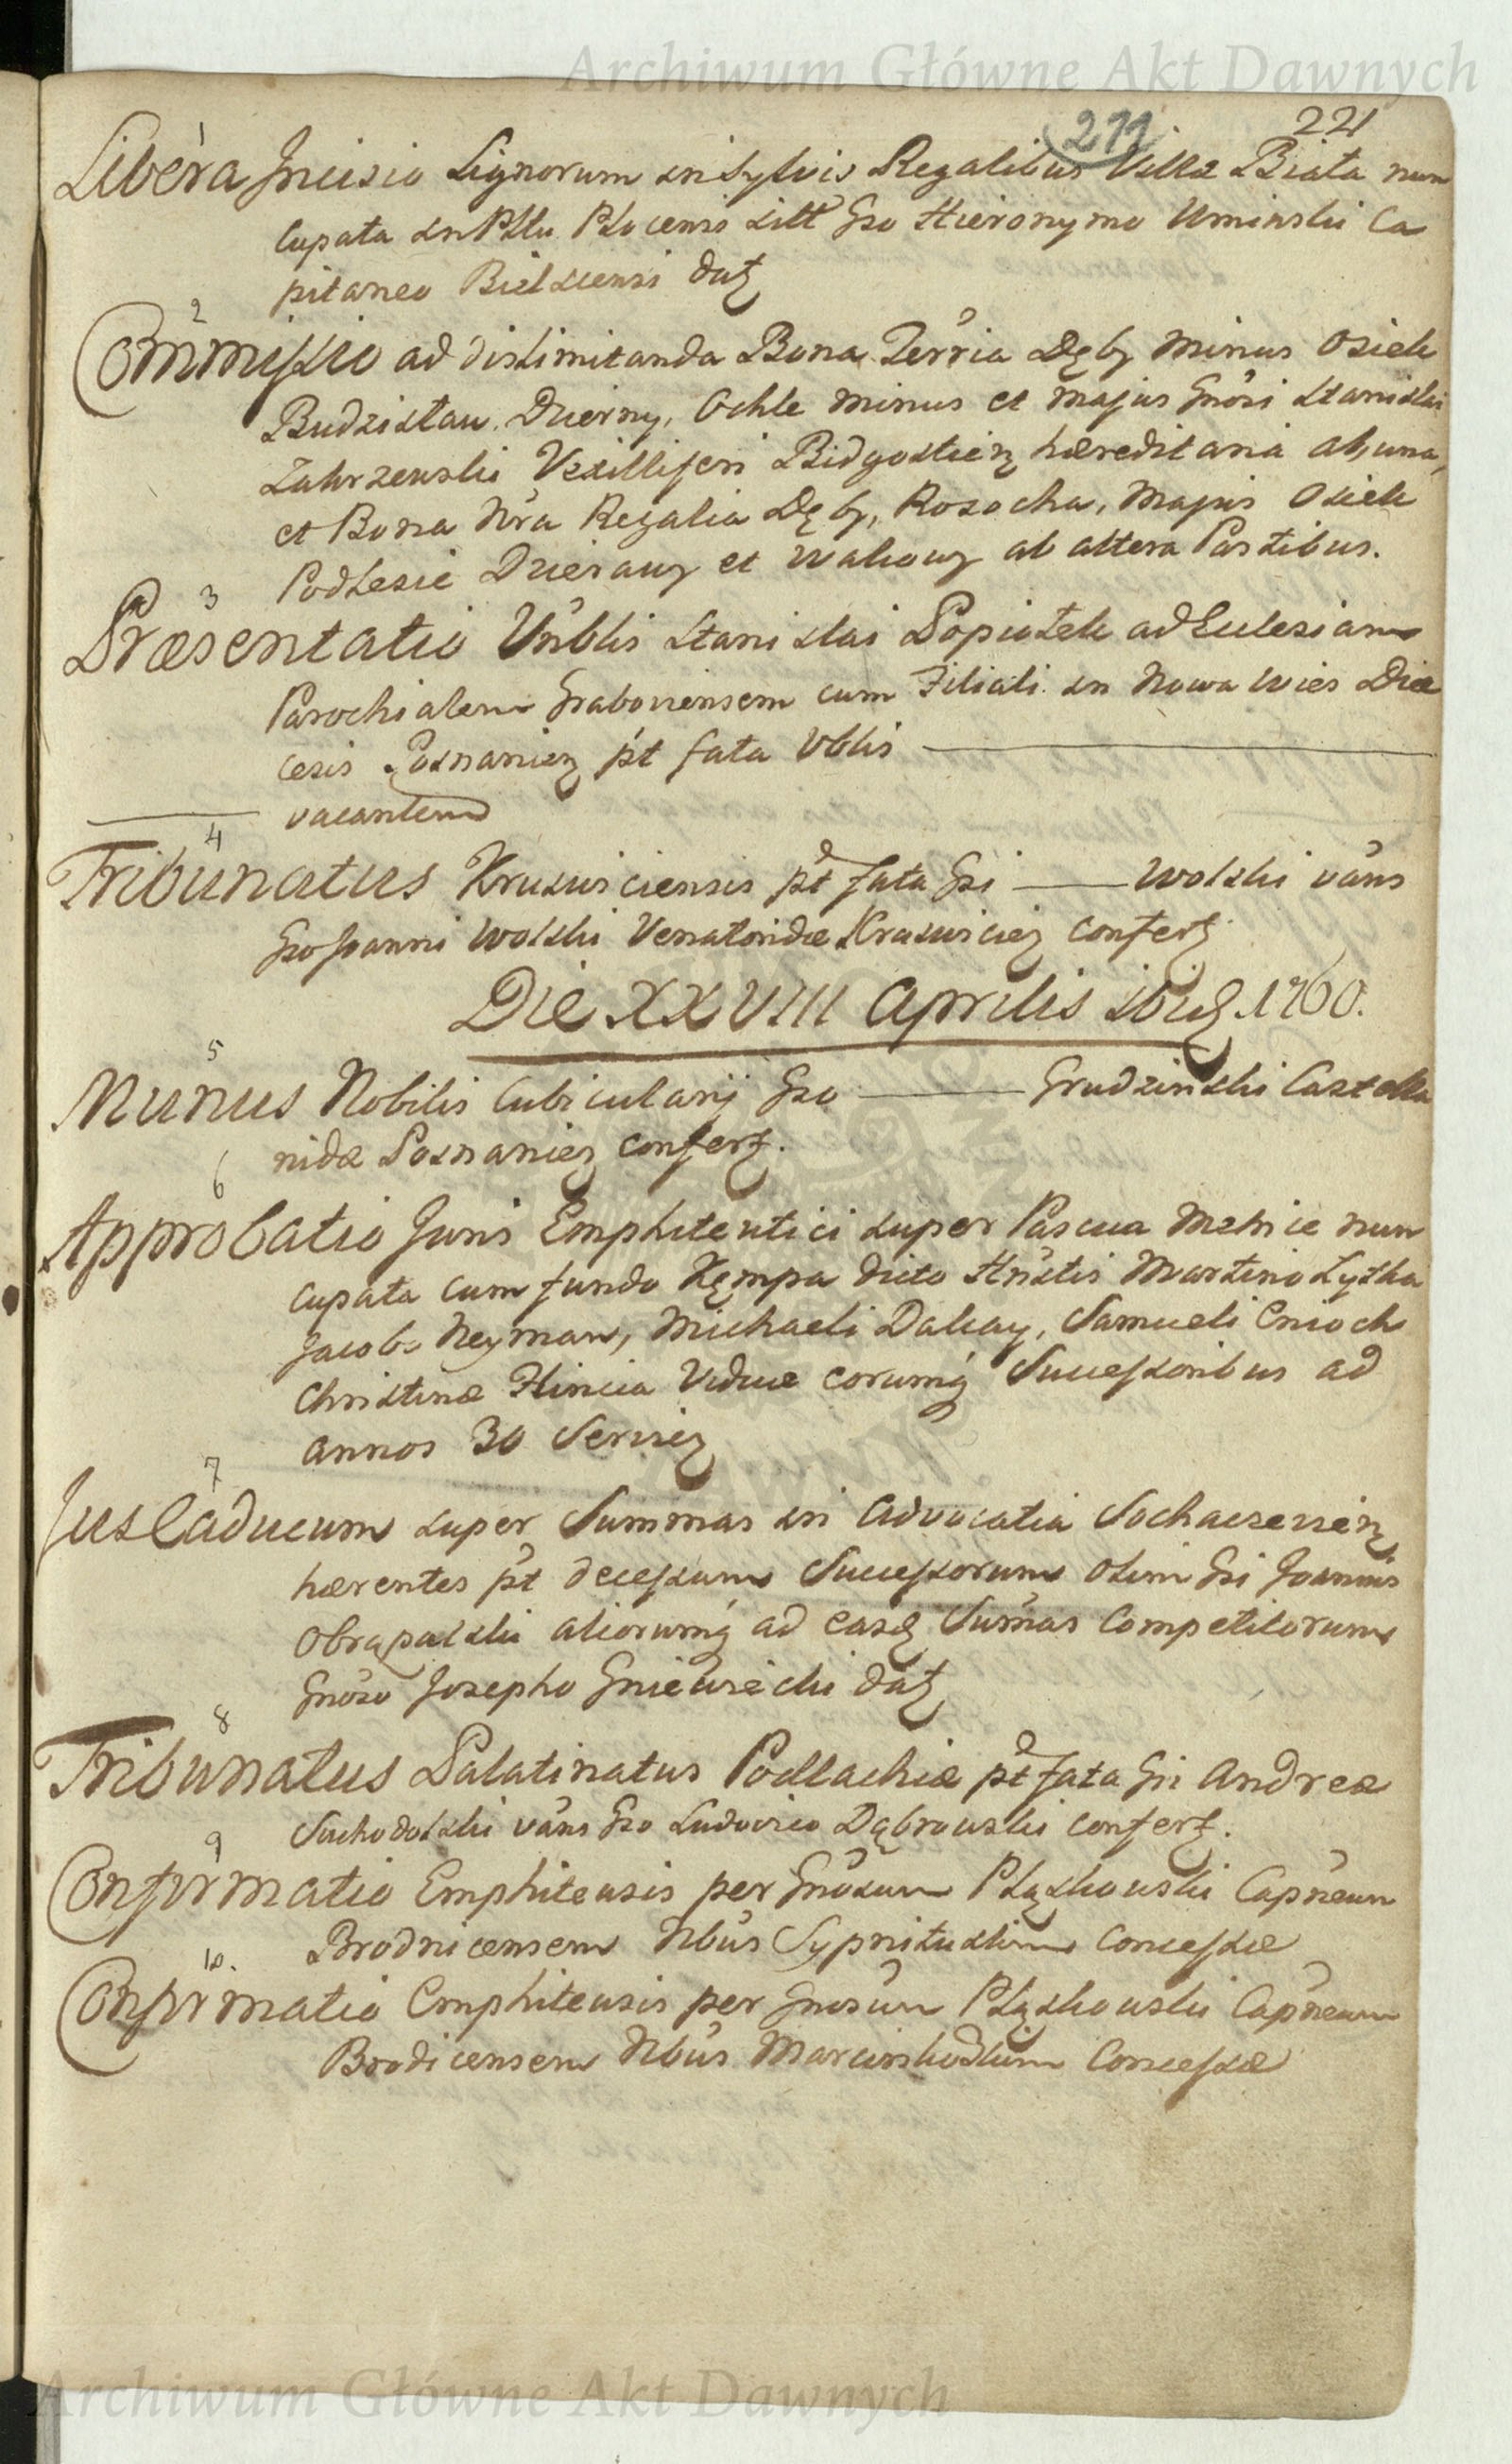 Archiwum Główne Akt Dawnych
211 221
1
Libera Incisio Lignorum in Sylvis Regalibus Villa Biała nun
cupata in Pttu Plocensi Sitt Gso Hieronymo Uminski Ca
pitaneo Bielscensi datz
2
Commissio ad dislimitanda Bona Terria Dęby minus Osiek
Budzisław, Dzierny, Ochle minus et majus Gnosi Stanislai
Zakrzewski Vexilliferi Bidgostienz hæreditaria ab una,
et Bona Nra Regalia Dęby, Rosocha, Majus Osiek
Podlesie Dzierawy et Wakowy ab altera Partibus.
3
Præsentatio Vnblis Stanislai Popiołek ad Ecclesiam
Parochialem Graboviensem cum Filiali in Nowa Wies Diæ
cesis Posnanienz pt fata Vblis ———
——— vacantem
4
Tribunatus Krusviciensis pt fata Gsi ——— Wolski vans
Gso Joanni Wolski Venatoridæ Krusvicienz confertz
Die XXVIII Aprilis ibid. 1760.
5
Munus Nobilis Cubicularij Gso ——— Grudzinski Castella
nidæ Posnanienz confertz.
6
Approbatio Juris Emphiteutici super Pascua Metnice nun
cupata cum fundo Kempa dicto Hnstis Martino Lyska
Jacobo Neyman, Michaeli Dakay, Samueli Enoch
Christinæ Hincia Viduæ eorumq Successoribus ad
annos 30 Servienz
7
Jus Caducum super Summas in Advocatia Sochaczevienz
hærentes pt decessum Successorum olim Gsi Joannis
Obrąpalski aliorumq ad easd Sumas Competitorum
Gnoso Josepho Gniewiecki datz
8
Tribunatus Palatinatus Podlachiæ pt fata Gsi Andreæ
Suchodolski vans Gso Ludovico Dąbrowski confertz.
9
Confirmatio Emphiteusis per Gnosum Pląskowski Capneum
Brodnicensem Nbus Sypnituskim Concessæ
10.
Confirmatio Emphiteusis per Gnosum Pląskowski Capneum
Brodicensem Nbus Marcinkodkim Concessæ
Archiwum Główne Akt Dawnych